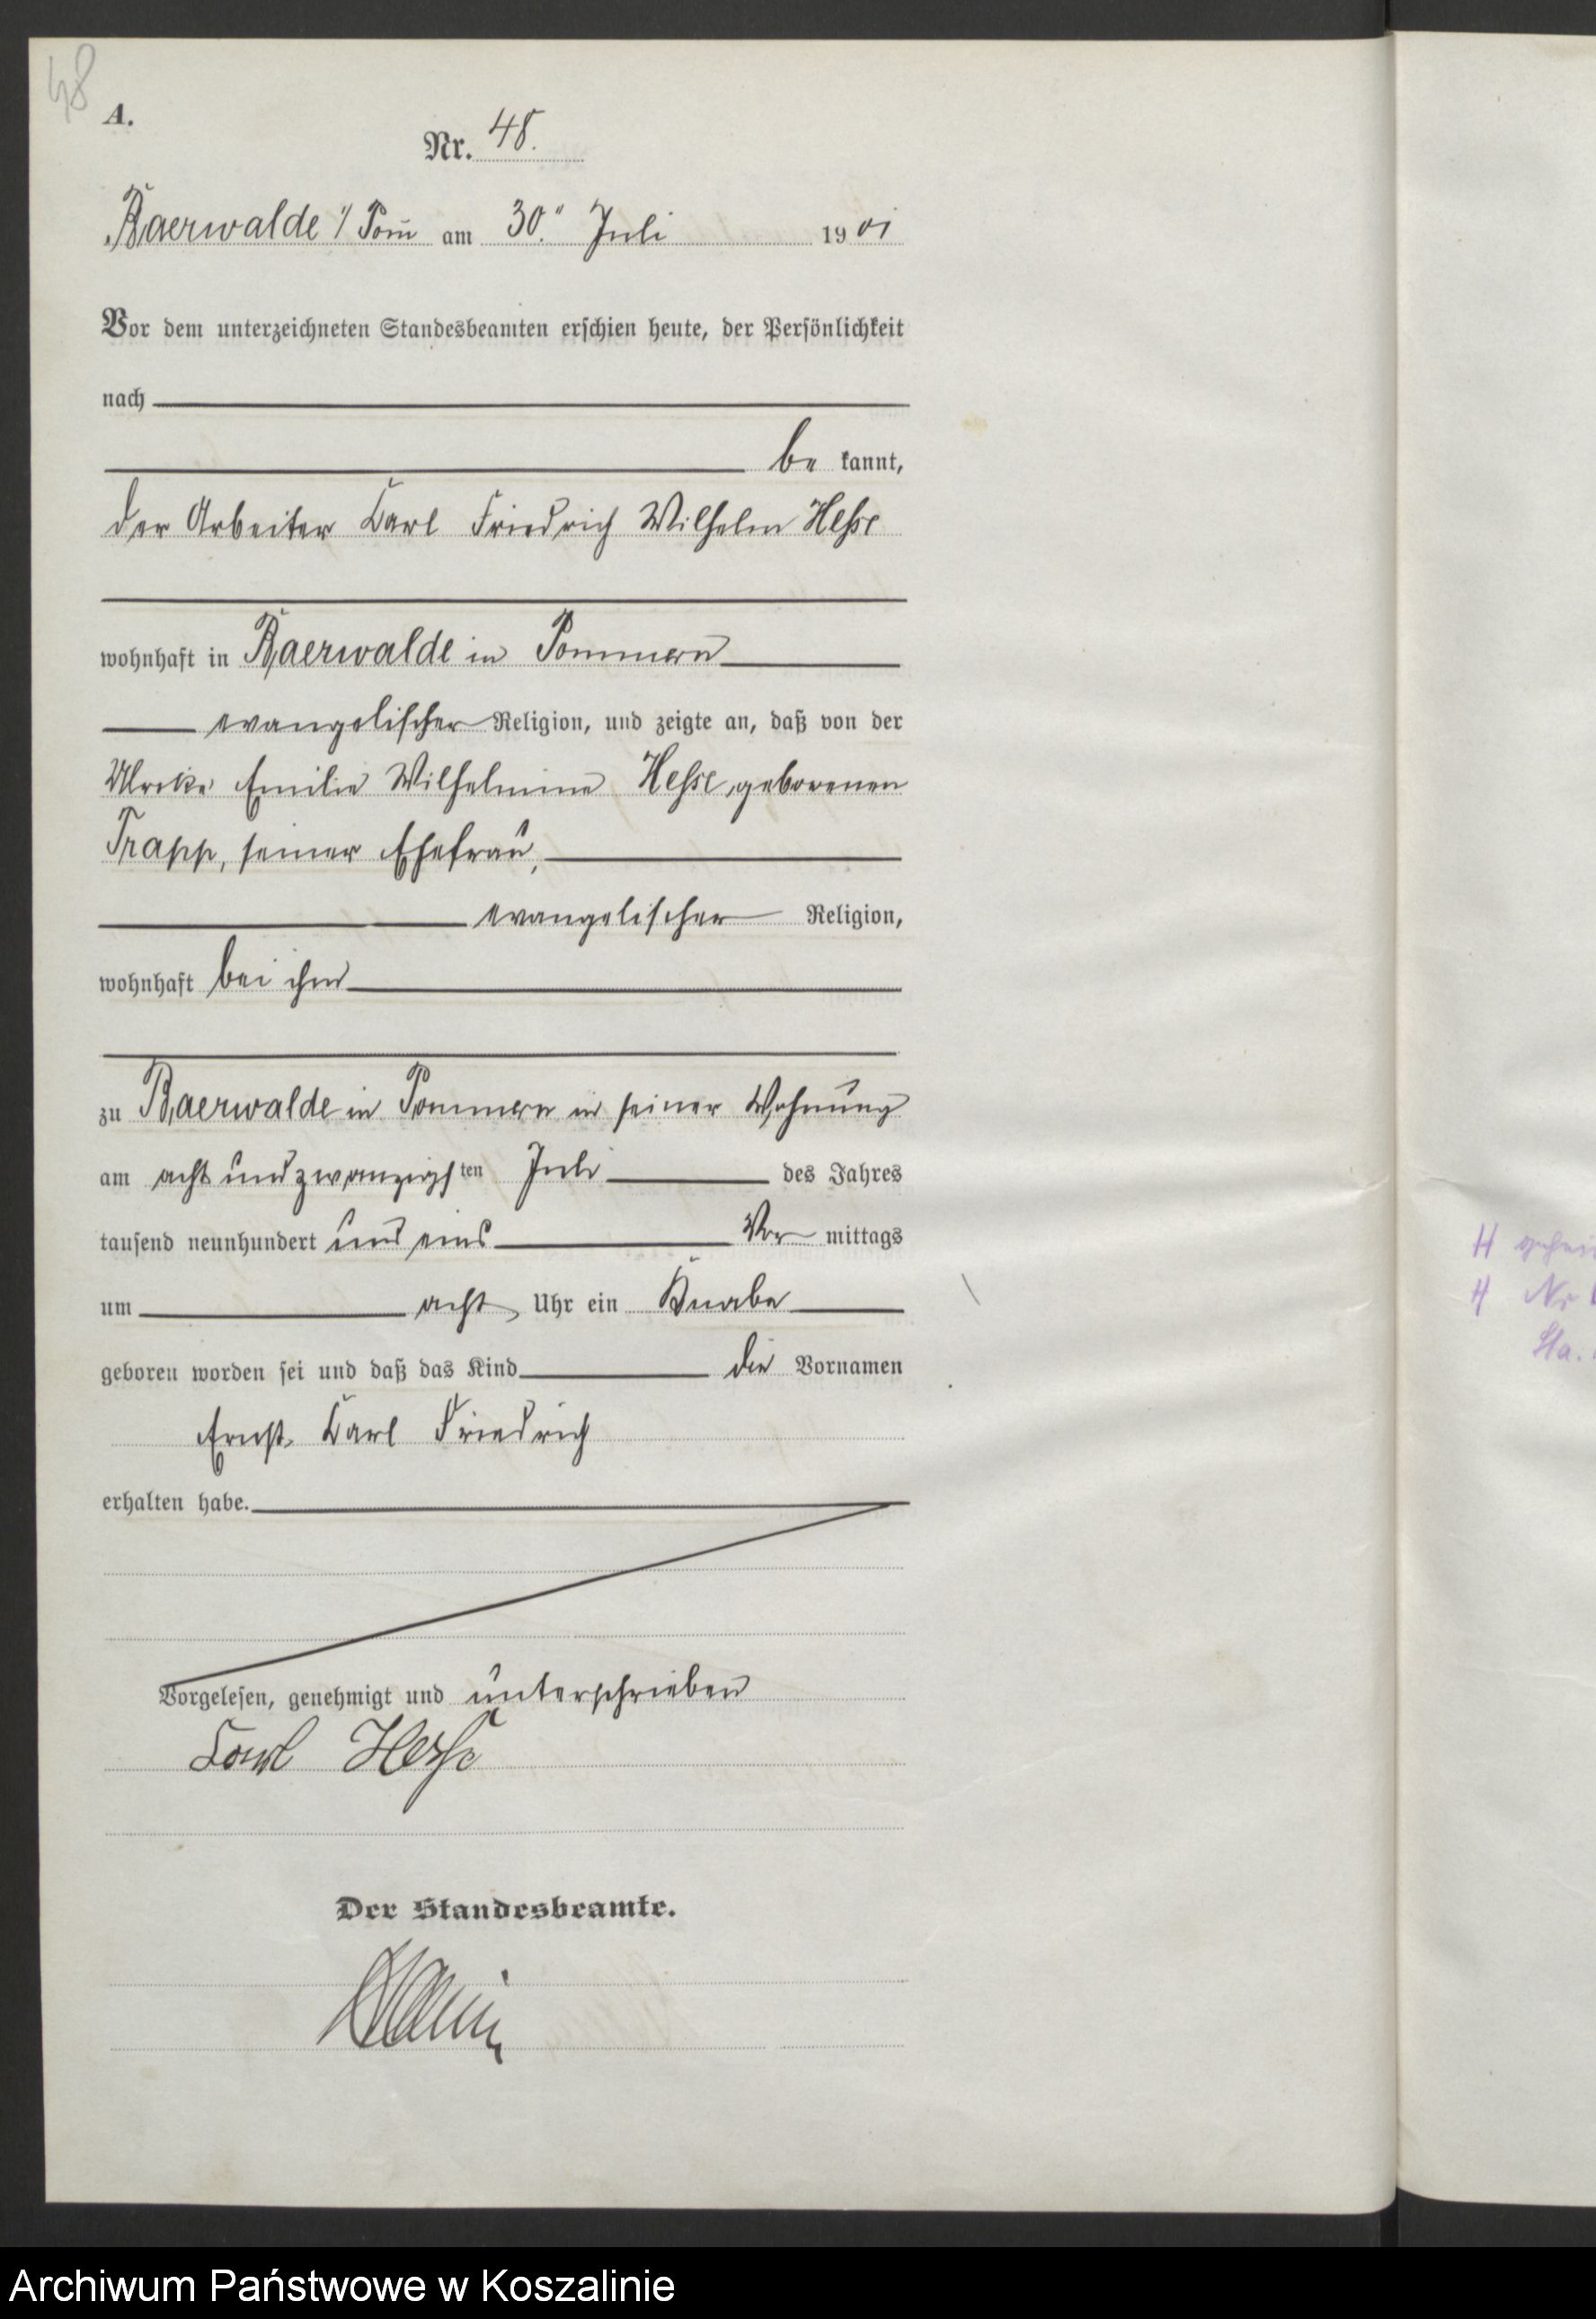 48
A.
Nr. 48.
Baerwalde i/Pom̅ am 30." Juli 1901
Vor dem unterzeichneten Standesbeamten erschien heute, der Persönlichkeit
nach
be kannt,
der Arbeiter Carl Friedrich Wilhelm Hesse
wohnhaft in Baerwalde in Pommern
evangelischer Religion, und zeigte an, daß von der
Ulrike Emilie Wilhelmine Hesse, geborenen
Trapp, seiner Ehefrau,
evangelischer Religion,
wohnhaft bei ihm
zu Baerwalde in Pommern in seiner Wohnung
am acht und zwanzigsten Juli des Jahres
tausend neunhundert und eins Vor mittags
um acht Uhr ein Knabe
geboren worden sei und daß das Kind die Vornamen
Ernst Carl Friedrich
erhalten habe.
Vorgelesen, genehmigt und unterschrieben
Carl Hesse
Der Standesbeamte.
H
H Nr
Sta.
Archiwum Państwowe w Koszalinie